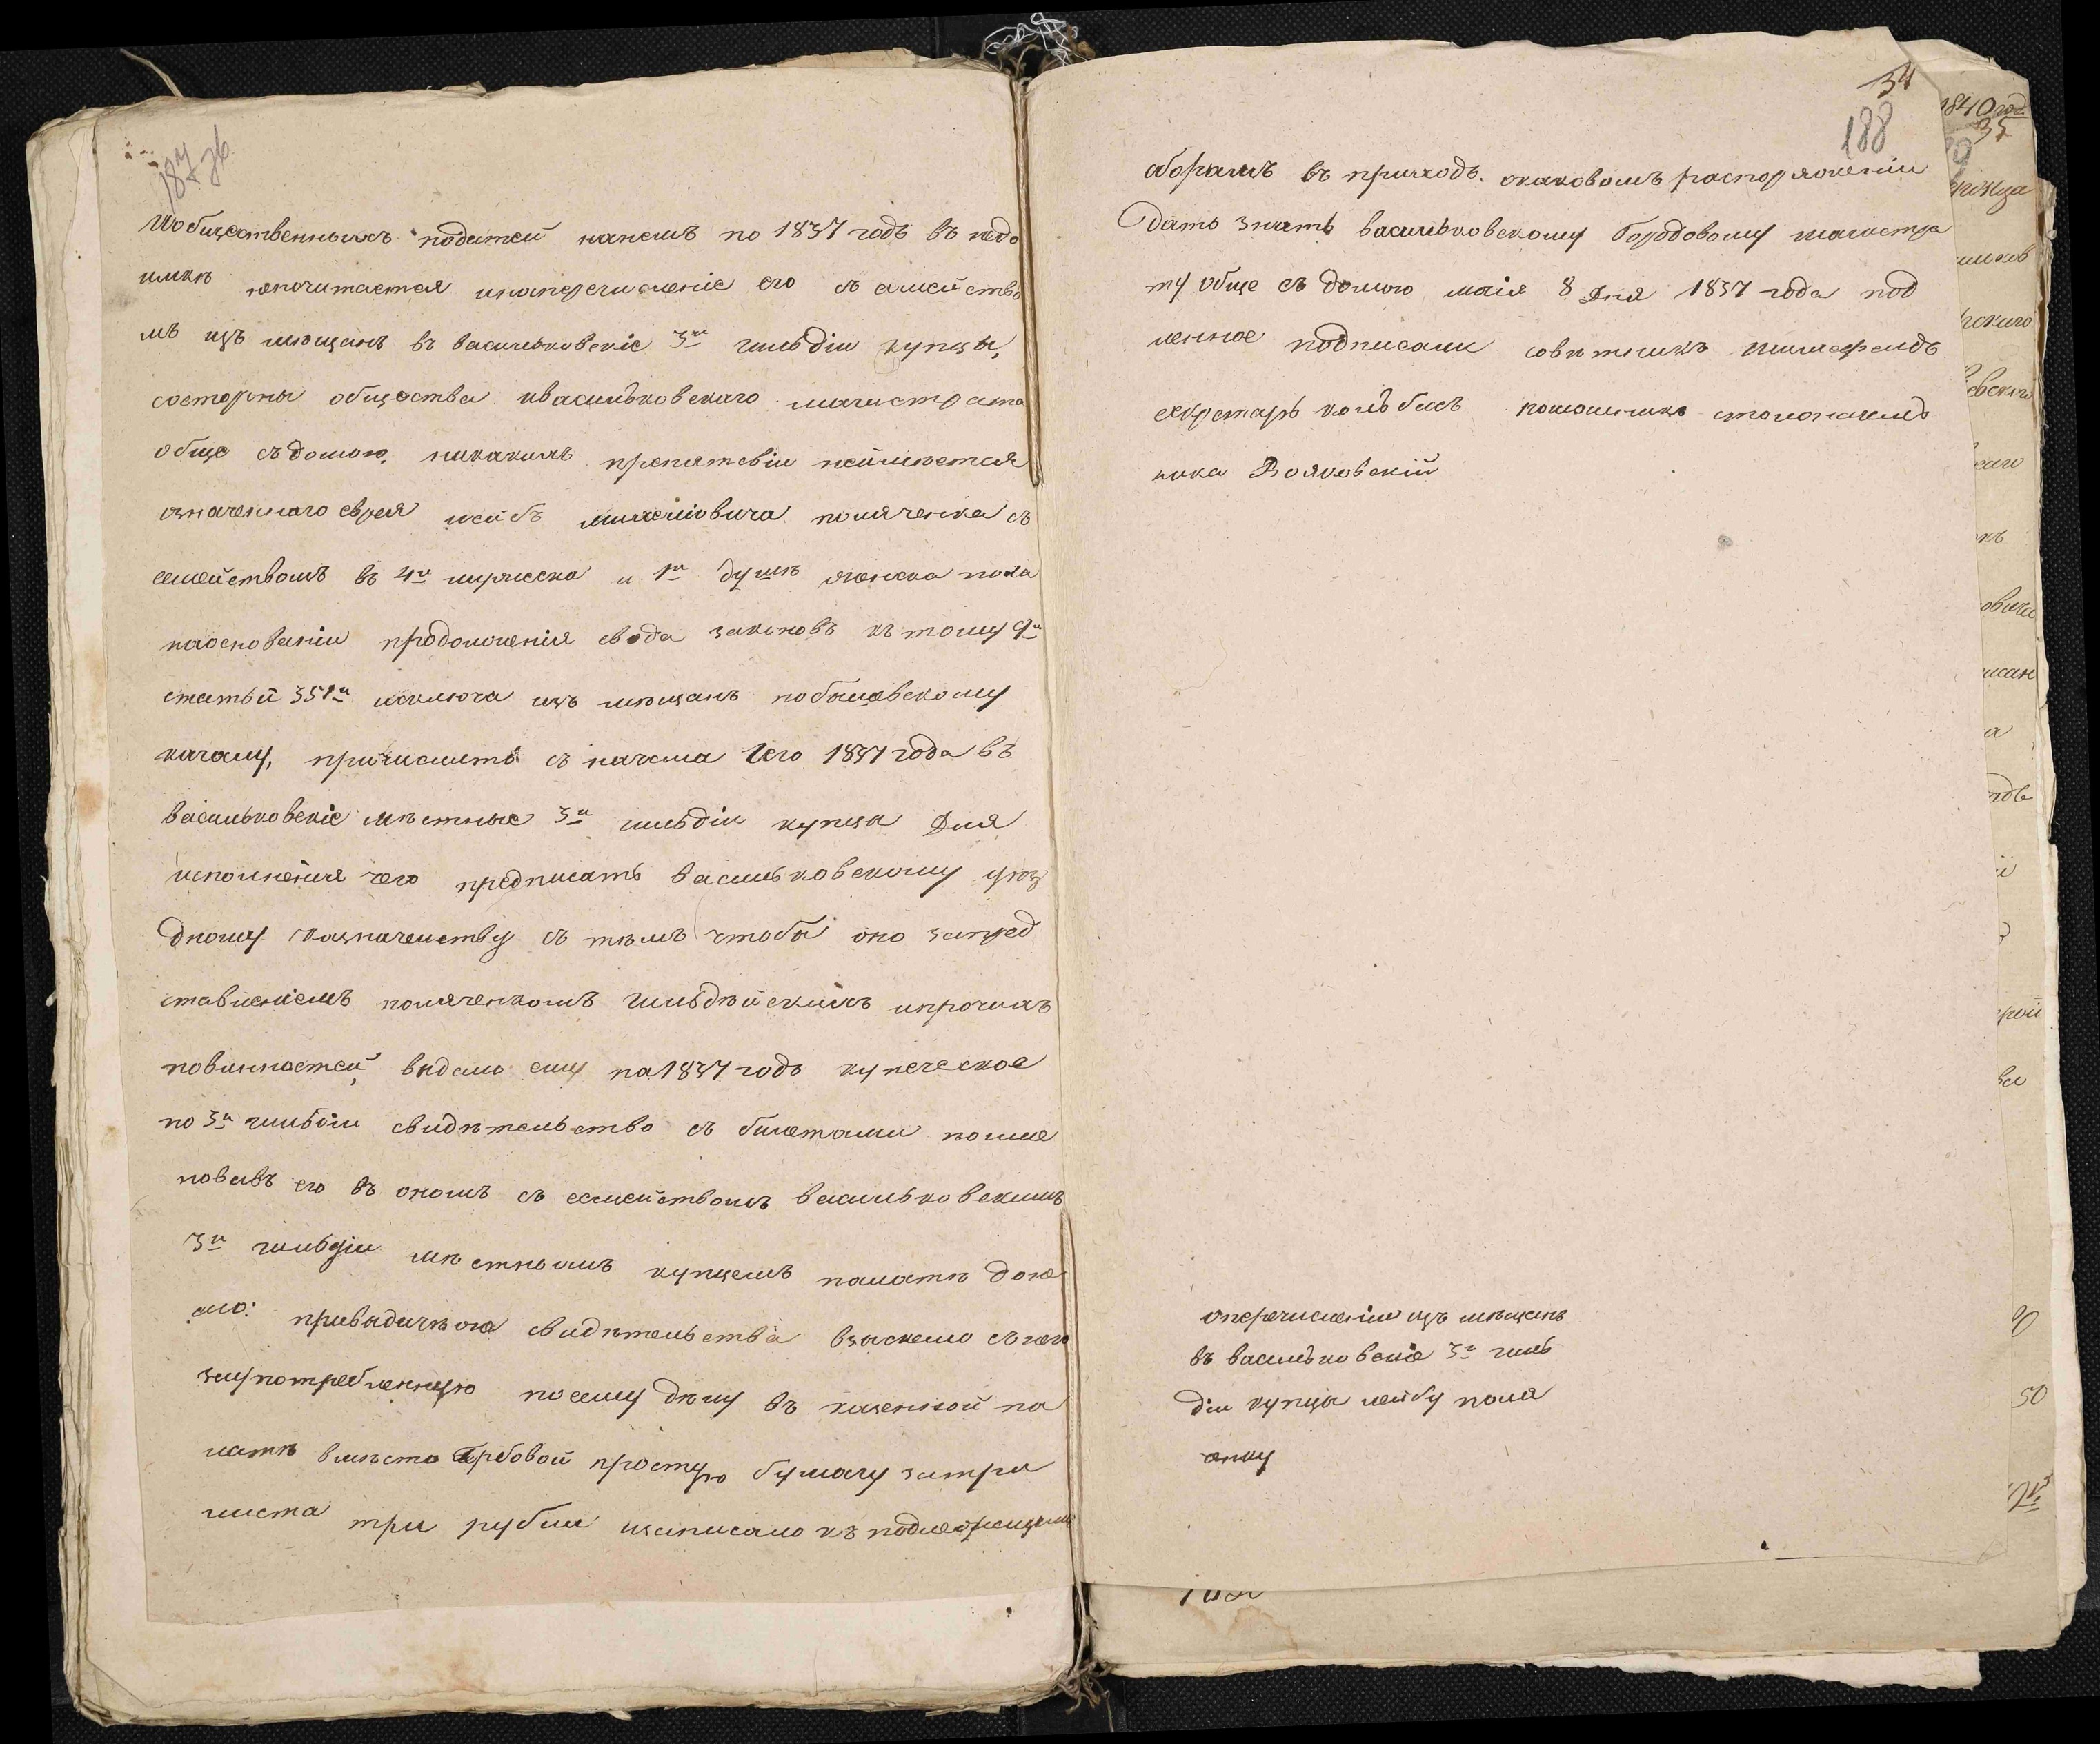 187 зв
Иобщественныхъ податей нанемъ по 1837 годъ въ недо
имкѣ непочитается инаперечисленіе его съ семейство
мъ изъ мѣщанъ въ васильковскіе 3й гильдіи купцы,
состороны общества ивасильковскаго магистрата
обще съ думою, никакихъ препятствіи неимѣется
означеннаго еврея поляченка съ
семействомъ въ 4й мужеска и 1й душѣ женска пола
наоснованіи продолженія свода законовъ къ тому 9й
статьи 351й исключа изъ мѣщанъ
кагалу, причислить съ начала 1837 года въ
васильковскіе мѣстные 3й гильдіи купцы Для
исполненія чего предписать васильковскому уѣз
дному казначейству съ тѣмъ чтобы оно запред
ставленіемъ поляченкомъ гильдѣйскихъ ипрочихъ
повинностей, видало ему на 1837 годъ купеческое
по 3й гильдіи свидѣтельство съ билетами поиме
новавъ его въ ономъ съ семействомъ васильковскимъ
3й гильдіи мѣстнымъ купцемъ палатѣ доне
сло: свидѣтельства взыскало съ него
заупотребленную посему дѣлу въ казенной па
латѣ вмѣсто гербовой простую бумагу затри
листа три рубли изаписало къ подлежащимъ
34
188
зборамъ въ приходъ. окаковомъ распоряженіи
Дать знать васильковскому Городовому магистра
ту обще съ думою маія 8 дня 1837 года под
линное подписали совѣтникъ
секретарь помощникъ столоначаль
ника
оперечисленіи изъ мѣщанъ
въ васильковскіе 3й гиль
діи купцы лейбу поля
ченку
1840 год
35
50